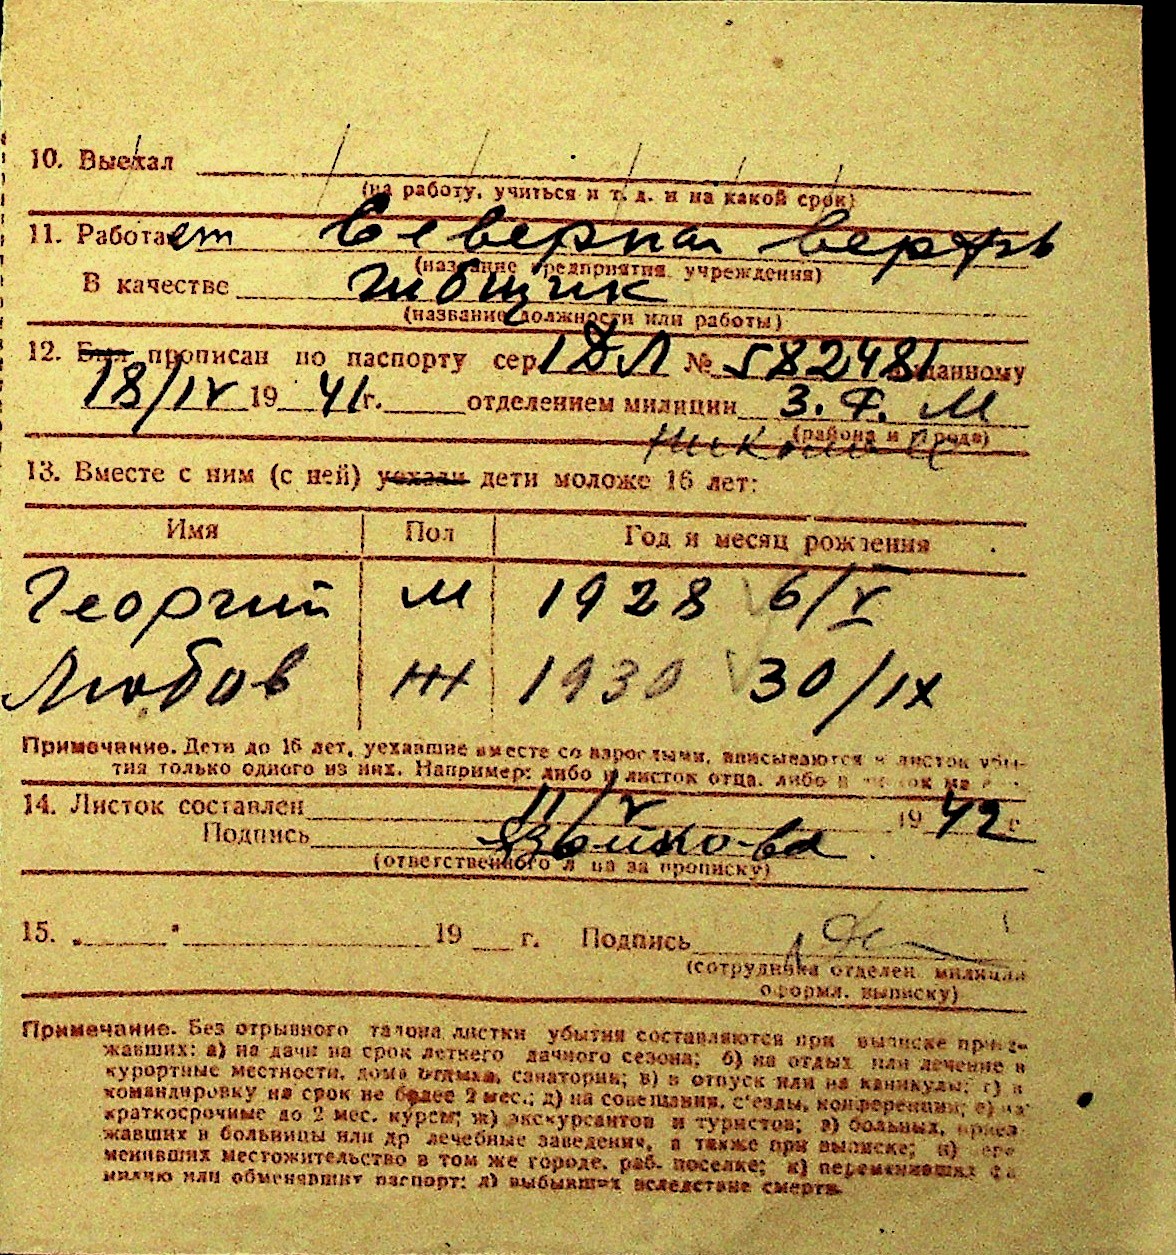 10. Выехал
(на работу, учиться и т. д. и на какой срок)
11. Работает Северная верфь
(название предприятия учреждения)
В качестве гибщик
(название должности или работы)
12. Был прописан по паспорту сер. I ДЛ № 582481 выданному
18/IV 1941 г. отделением милиции З. Ф. М
(района и города)
Николаев
13. Вместе с ним (с ней) уехали дети моложе 16 лет:
Имя Пол Год и месяц рождения
Георгий М 1928 6/V
Любов Ж 1930 30/IX
Примечание. Дети до 16 лет, уехавшие вместе со взрослыми, вписываются в листок убы-
тия только одного из них. Например: либо в листок отца, либо в листок
14. Листок составлен 11/V 1942 г
Подпись
(ответственного лица за прописку)
15. „ " 19 г. Подпись
(сотрудника отделен. милиции
оформл. выписку)
Примечание. Без отрывного талона листки убытия составляются при выписке приез-
жавших: а) на дачи на срок летнего дачного сезона; б) на отдых или лечение в
курортные местности, дома отдыха, санатории; в) в отпуск или на каникулы; г) в
командировку на срок не более 2 мес.; д) на совещания, съезды, конференции; е) на
краткосрочные до 2 мес. курсы; ж) экскурсантов и туристов; з) больных, приез-
жавших в больницы или др лечебные заведения, а также при выписке; и) пере-
менивших местожительство в том же городе, раб. поселке; к) переменивших фа-
милию или обменявших паспорт; л) выбывших вследствие смерти.